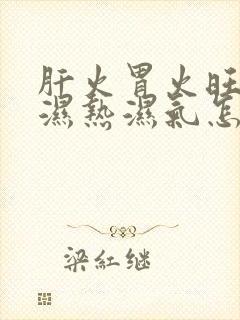 肝火胃火旺
濕熱濕氣怎
梁紅继